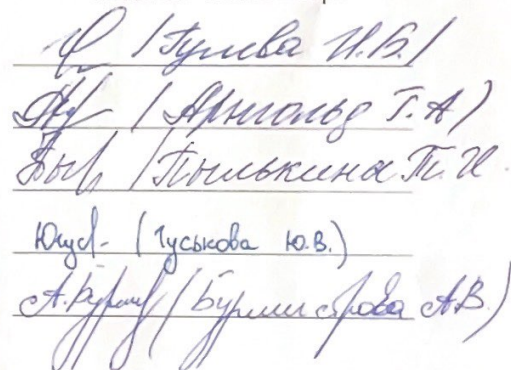 /Гулева И.Б./
(Арнгольд Г.А)
/Пылькина Т.И.
(Гуськова Ю.В.)
А.Бурми (Бурмистрова А.В.)